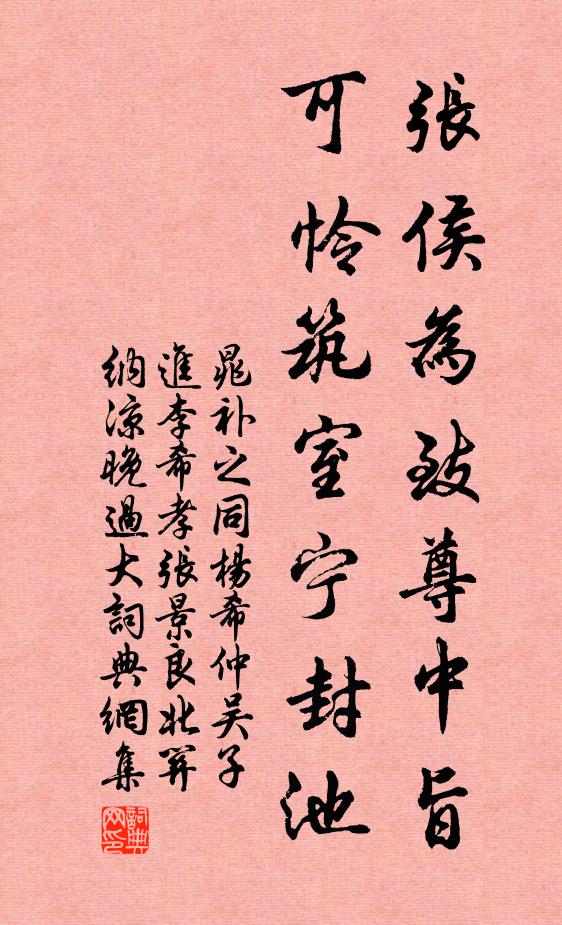 張侯為致尊中旨
可怜筑室宁封池
晁补之同楊希仲吴子
進李希孝張景良北关
納凉晚過大詞典網集
詞典
网印